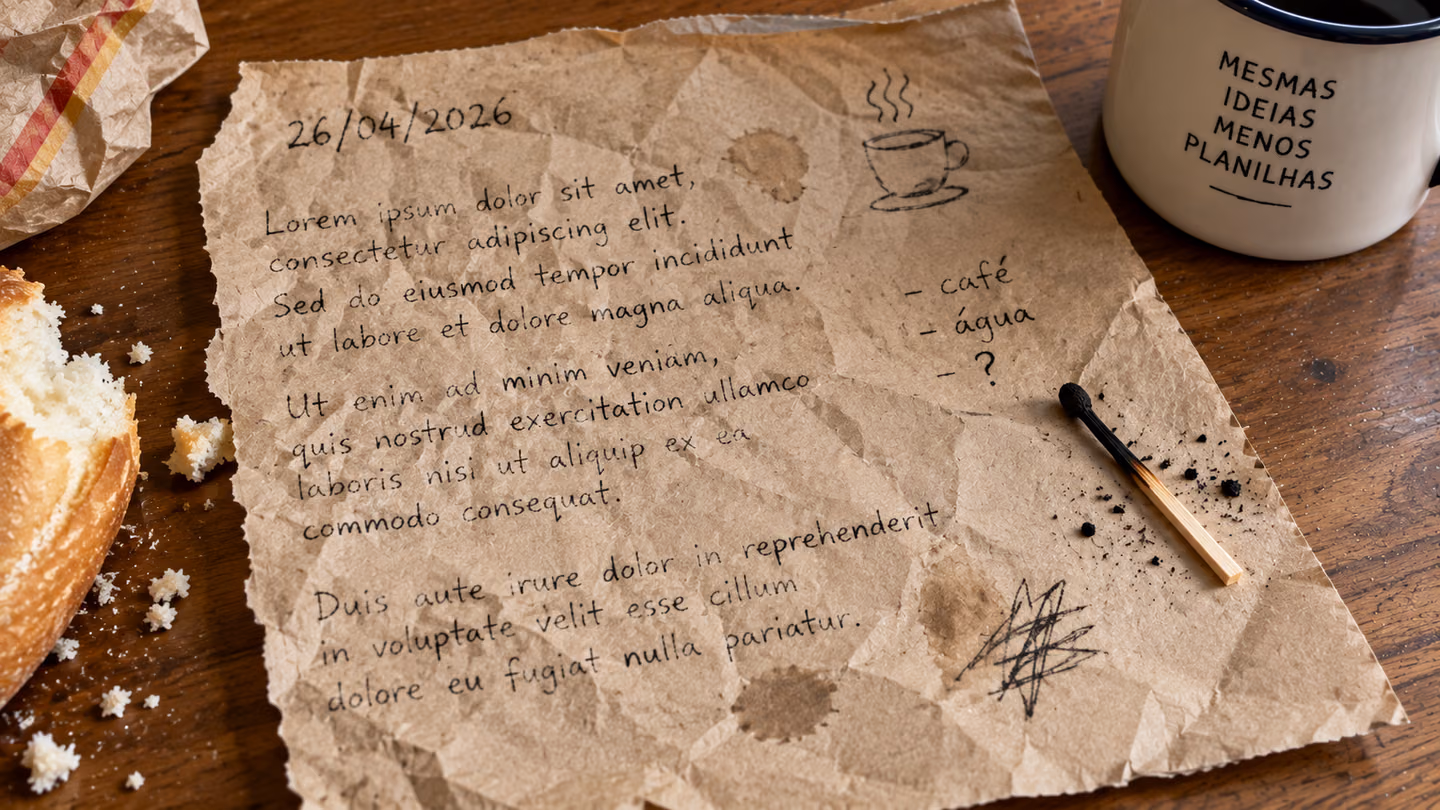 26/04/2026
Lorem ipsum dolor sit amet,
consectetur adipiscing elit.
Sed do eiusmod tempor incididunt
ut labore et dolore magna aliqua.
Ut enim ad minim veniam,
quis nostrud exercitation ullamco
laboris nisi ut aliquip ex ea
commodo consequat.
Duis aute irure dolor in reprehenderit
in voluptate velit esse cillum
dolore eu fugiat nulla pariatur.
- café
- água
- ?
MESMAS
IDEIAS
MENOS
PLANILHAS